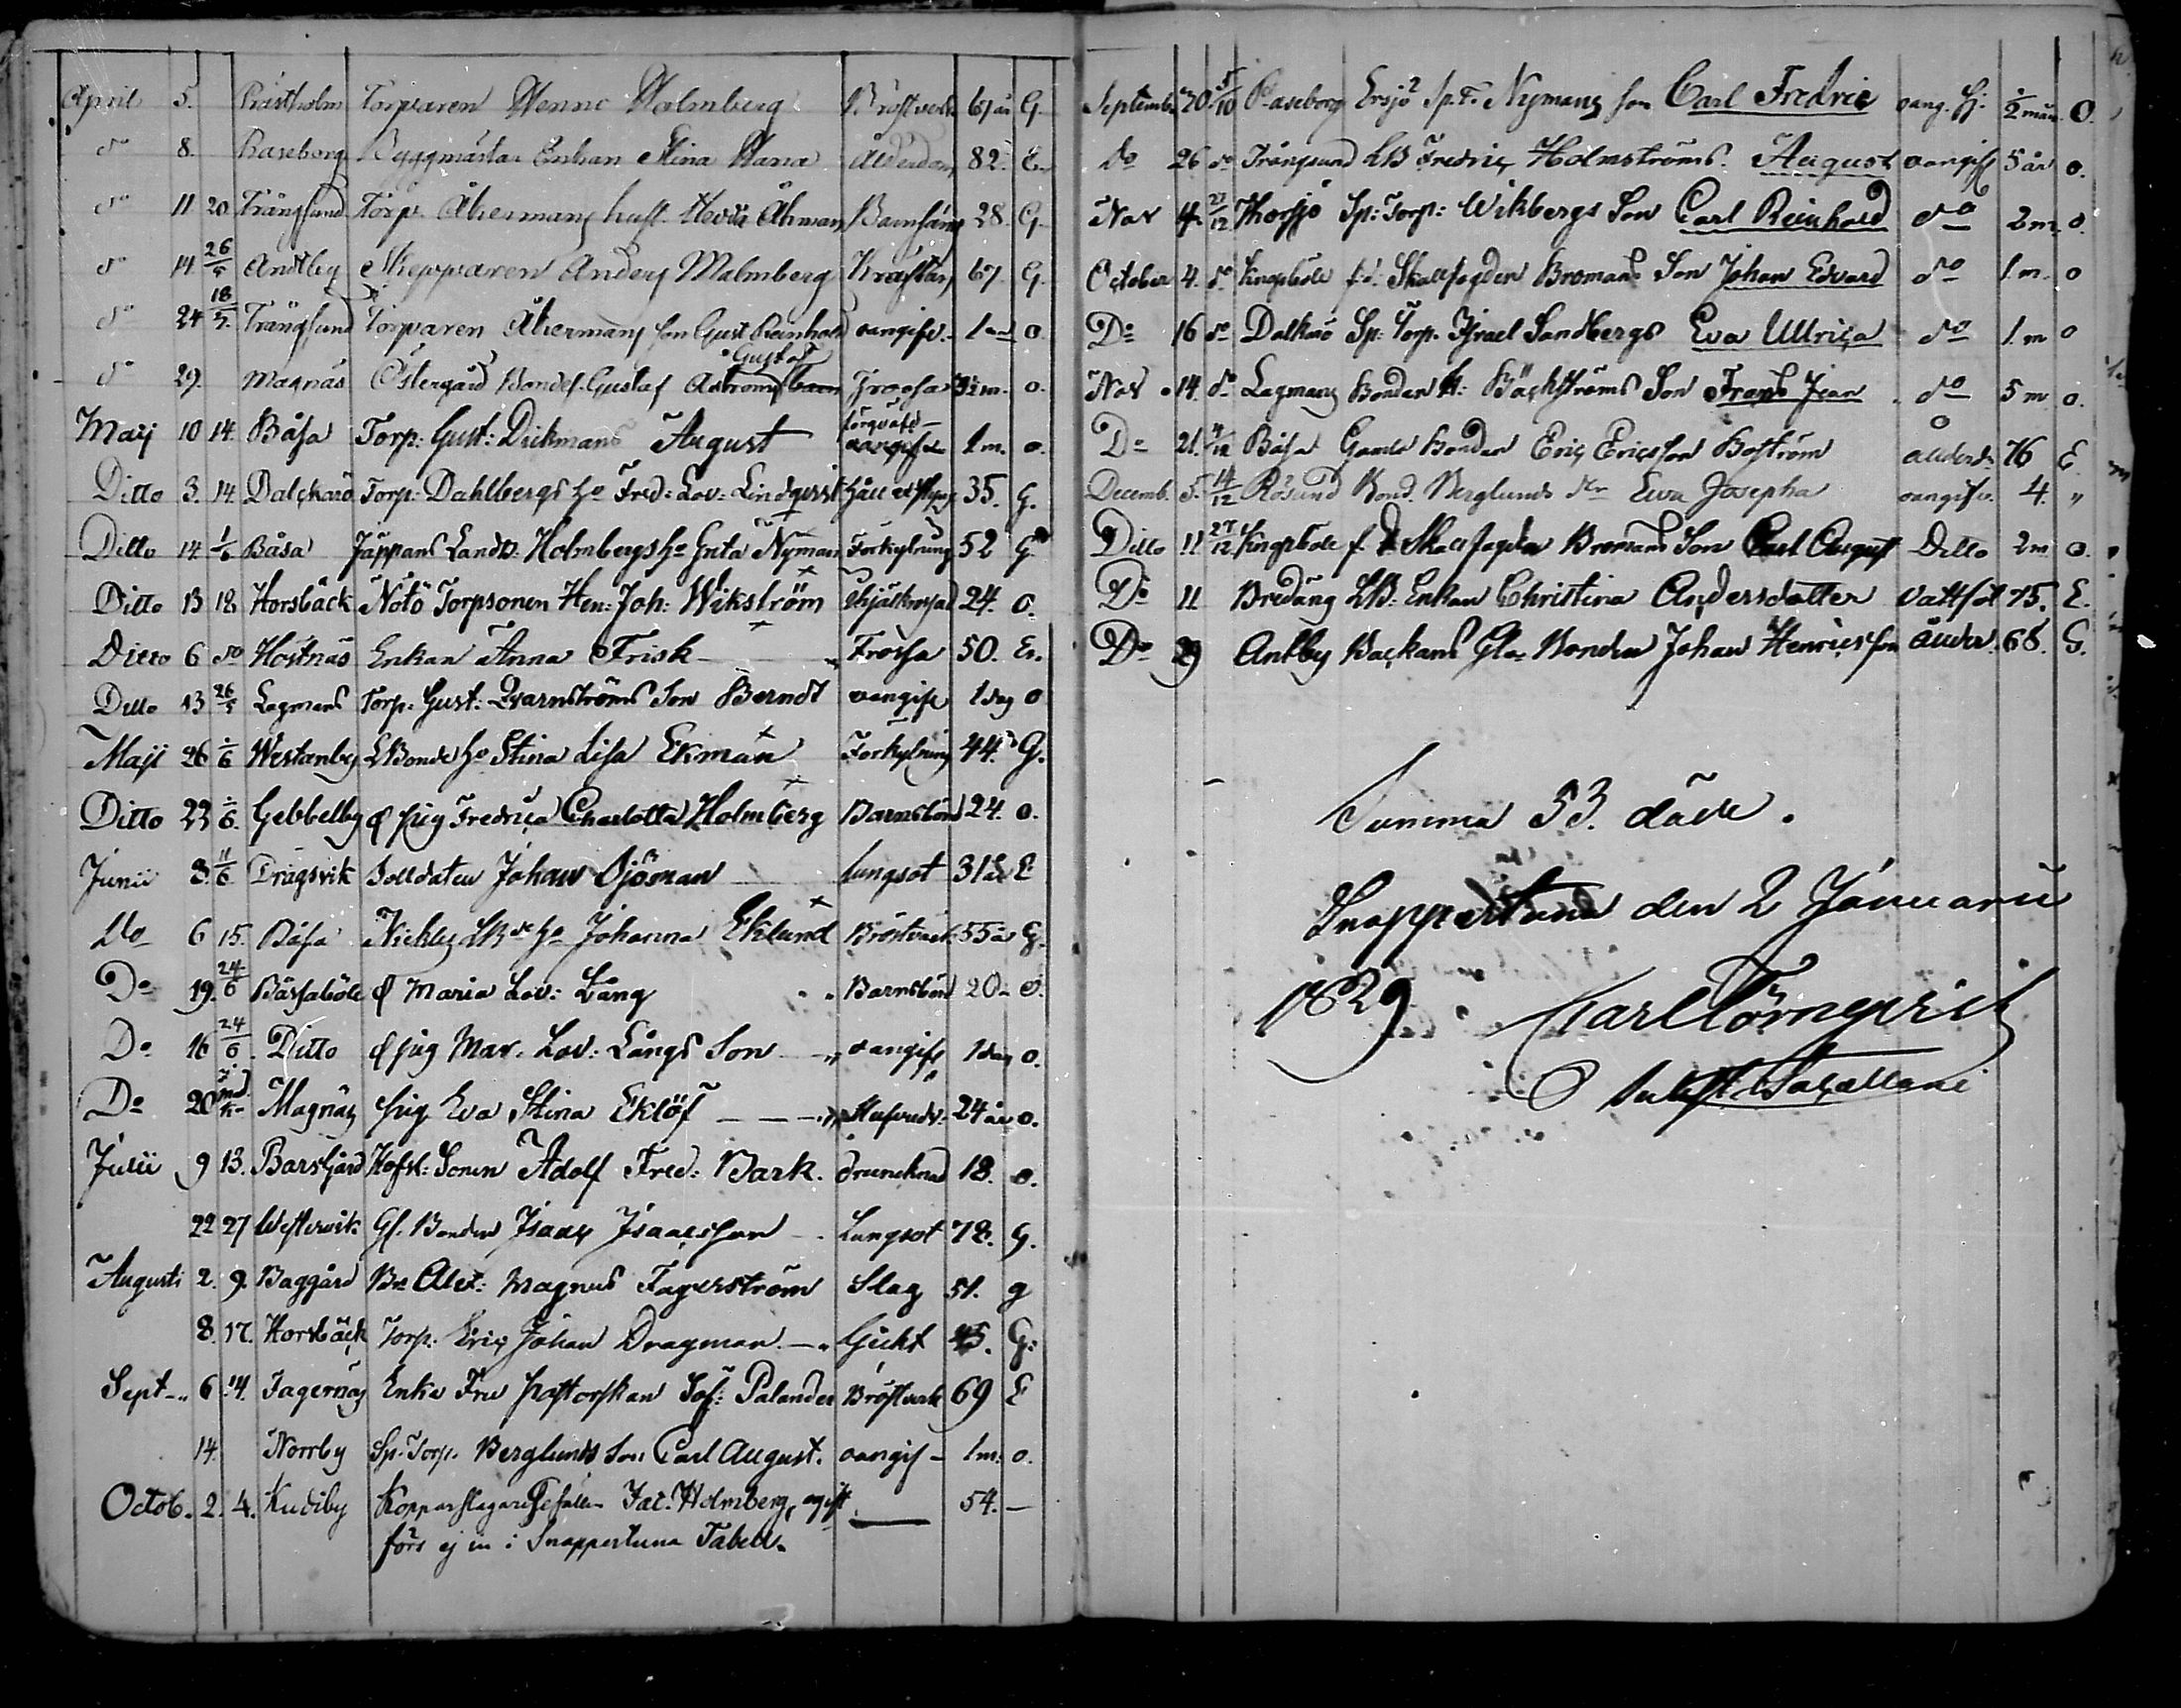 April 5. Prästholm Torparen Henric Malmberg Bröstverk 67 år G.
do 8. Raseborg Byggmästar Enkan Stina Ålderdom 82. E.
do 11 20 Trångsund Torp. Åkermans hust. Åhman Barnsäng 28. G.
do 14. 26/5 Andtby Skepparen Anders Malmberg 67 G.
do 24 18/5. Trångsund Torparen Åkermans son Gust Reinhold oangifv. o.
Gustaf
do 29. Magnäs Östergård Bondes. Gustaf Åströms barn o.
Maij 10 14. Båsa Torp: Gust: Dickmans August 1 m. o.
Ditto 3. 14. Dalckarö Torp: Dahlbergs ho Fred: Lov: Lindqvist Håll et Styng 35. G.
Ditto 14 1/6 Båsa Jäppans Landb: Holmbergs ho Greta Nyman Förkylning 52 G
Ditto 13 18. Horsbäck Notö Torpsonen Hen: Joh: Wikström 24. o.
Ditto 6 do Höstnäs Enkan Anna Frisk Frossa 50. En.
Ditto 13 26/5 Lagmans Torp: Gust: Qvarnströms Son Berndt oangife 1 dag o
Maji 26 1/6 Westanby LBonde ho Stina Lisa Ekman Förkylning 44. G.
Ditto 23 1/6. Gebbelby pig Fredrica Charlotta Holmberg Barnsbörd 24. o.
Junii 8. 11/6. Dragsvik Solldaten Johan Sjöman lungsot 31 år E
Do 6 15. Båsa Nickby ho Johanna Eklund Bröstverk 55 år G.
Do 19. 24/6 Bässaböle Maria Lov: Lång Barnsbörd 20 o.
Do 16 24/6. Ditto pig Mar. Lov: Långs Son oangife 1 dag o.
Do 20 Magnäs pig Eva Stina Eklöf 24 år o.
Julii 9 13. Barsgård Sonen Adolf Fred: Bark. drunknad 18. o.
22 27 Westervik Gl. Bonden Isaac Isaacsson Lungsot 78. G.
Augusti 2. 9. Baggård Alex: Magnus Fagerström Slag 51. g
8. 17. Horsbäck Torp: Eric Johan Dragman Gickt 45. G:
Sept 6 14. Fagernäs Enke Fru Pastorskan Sof: Palander Bröstverk 69 E
14. Norrby Sp. Torp. Berglunds Son Carl August. oangif 1 m: o.
Octob. 2. 4. Kudiby Kopparslagare Gesällen Jac. Holmberg, ogift 54. —
förs ej in i Snappertuna Tabell.
September 20 5/10 Raseborg Ersjö Sp. T. Nymans son Carl Fredric oang. Sj: ½ mån. O.
Do 26 do Trångsund LB Fredric Holmströms August oangife 5 år o.
Nov 4 27/12 Thorsjö Sp: Torp: Wikbergs Son Carl Reinhold do 2 m. o.
October 4. do Kingsböle f.d. Skallfogden Bromans Son Johan Edvard do 1. m. o
Do 16 do Dalkarö Sp: Torp. Israel Sandbergs Eva Ullrica do 1. m o
Nov 14. do Lagmans Bonden Bäckströms Son Frans Jean do 5 m o.
Do 21. Båsa Gamle Bonden Eric Ericsson Boström 76 E
Decemb. 5. 14/12 Rösund Bond. Berglunds dtr Eva Josepha oangifv. 4. "
Ditto 11 27/12 Kingsböle f. d Skallfogden Bromans Son Carl August Ditto 2 m o.
Do 11 Bredäng LB: Enkan Christina Andersdotter vattsot 75. E.
Do 29 Antby Backans Gla Bonden Johan Henricsson ålder. 68. G.
Summa 53. döde.
Snappertuna den 2 Januarii
1829 Carl Törnqvist